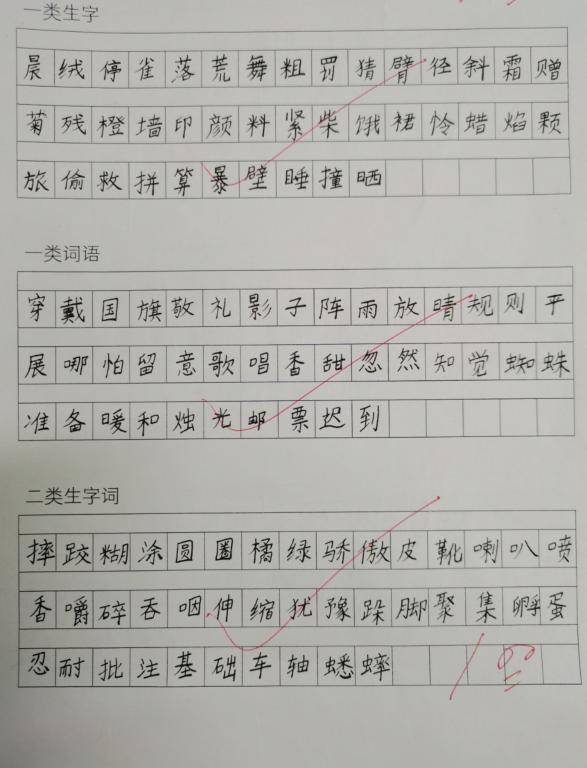 一类生字
晨绒停雀落荒舞粗罚猜臂径斜霜赠
菊残橙墙印颜料紧柴饿裙怜蜡焰颗
旅偷救拼算暴壁睡撞晒
一类词语
穿戴国旗敬礼影子阵雨放晴规则平
展哪怕留意歌唱香甜忽然知觉蜘蛛
准备暖和烛光邮票迟到
二类生字词
摔跤糊涂圆圈橘绿骄傲皮靴喇叭喷
香嚼碎吞咽伸缩犹豫跺脚聚集孵蛋
忍耐批注基础车轴蟋蟀
100